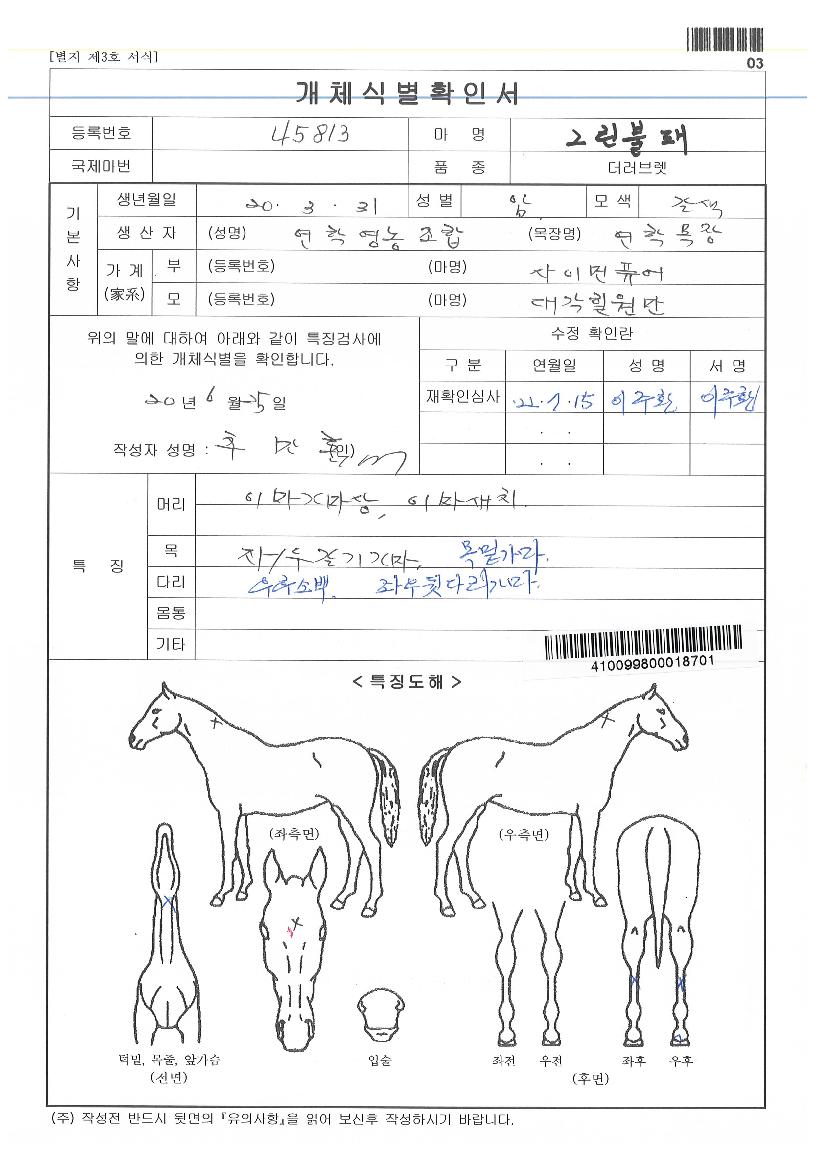 [별지 제3호 서식]
03
개체식별확인서
등록번호 45813 마 명 그린불패
국제마번 품 종 더러브렛
기본사항
생년월일 20. 3. 31 성 별 암 모 색 갈색
생 산 자 (성명) 연학영농조합 (목장명) 연학목장
가 계 (家系)
부 (등록번호) (마명) 사이먼퓨어
모 (등록번호) (마명) 대각일원만
위의 말에 대하여 아래와 같이 특징검사에
의한 개체식별을 확인합니다.
20년 6월 25일
작성자 성명 : (인)
수정 확인란
구 분 연월일 성 명 서 명
재확인심사 22.7.15 이주환 이주환
. .
. .
특 징
머리 이마가마상,
목 좌/우갈기가마, 목밑가마.
다리 우후소백. 좌우뒷다리가마.
몸통
기타
410099800018701
< 특징도해 >
(좌측면) (우측면)
턱밑, 목줄, 앞가슴 입술 좌전 우전 좌후 우후
(전면) (후면)
(주) 작성전 반드시 뒷면의 『유의사항』을 읽어 보신후 작성하시기 바랍니다.